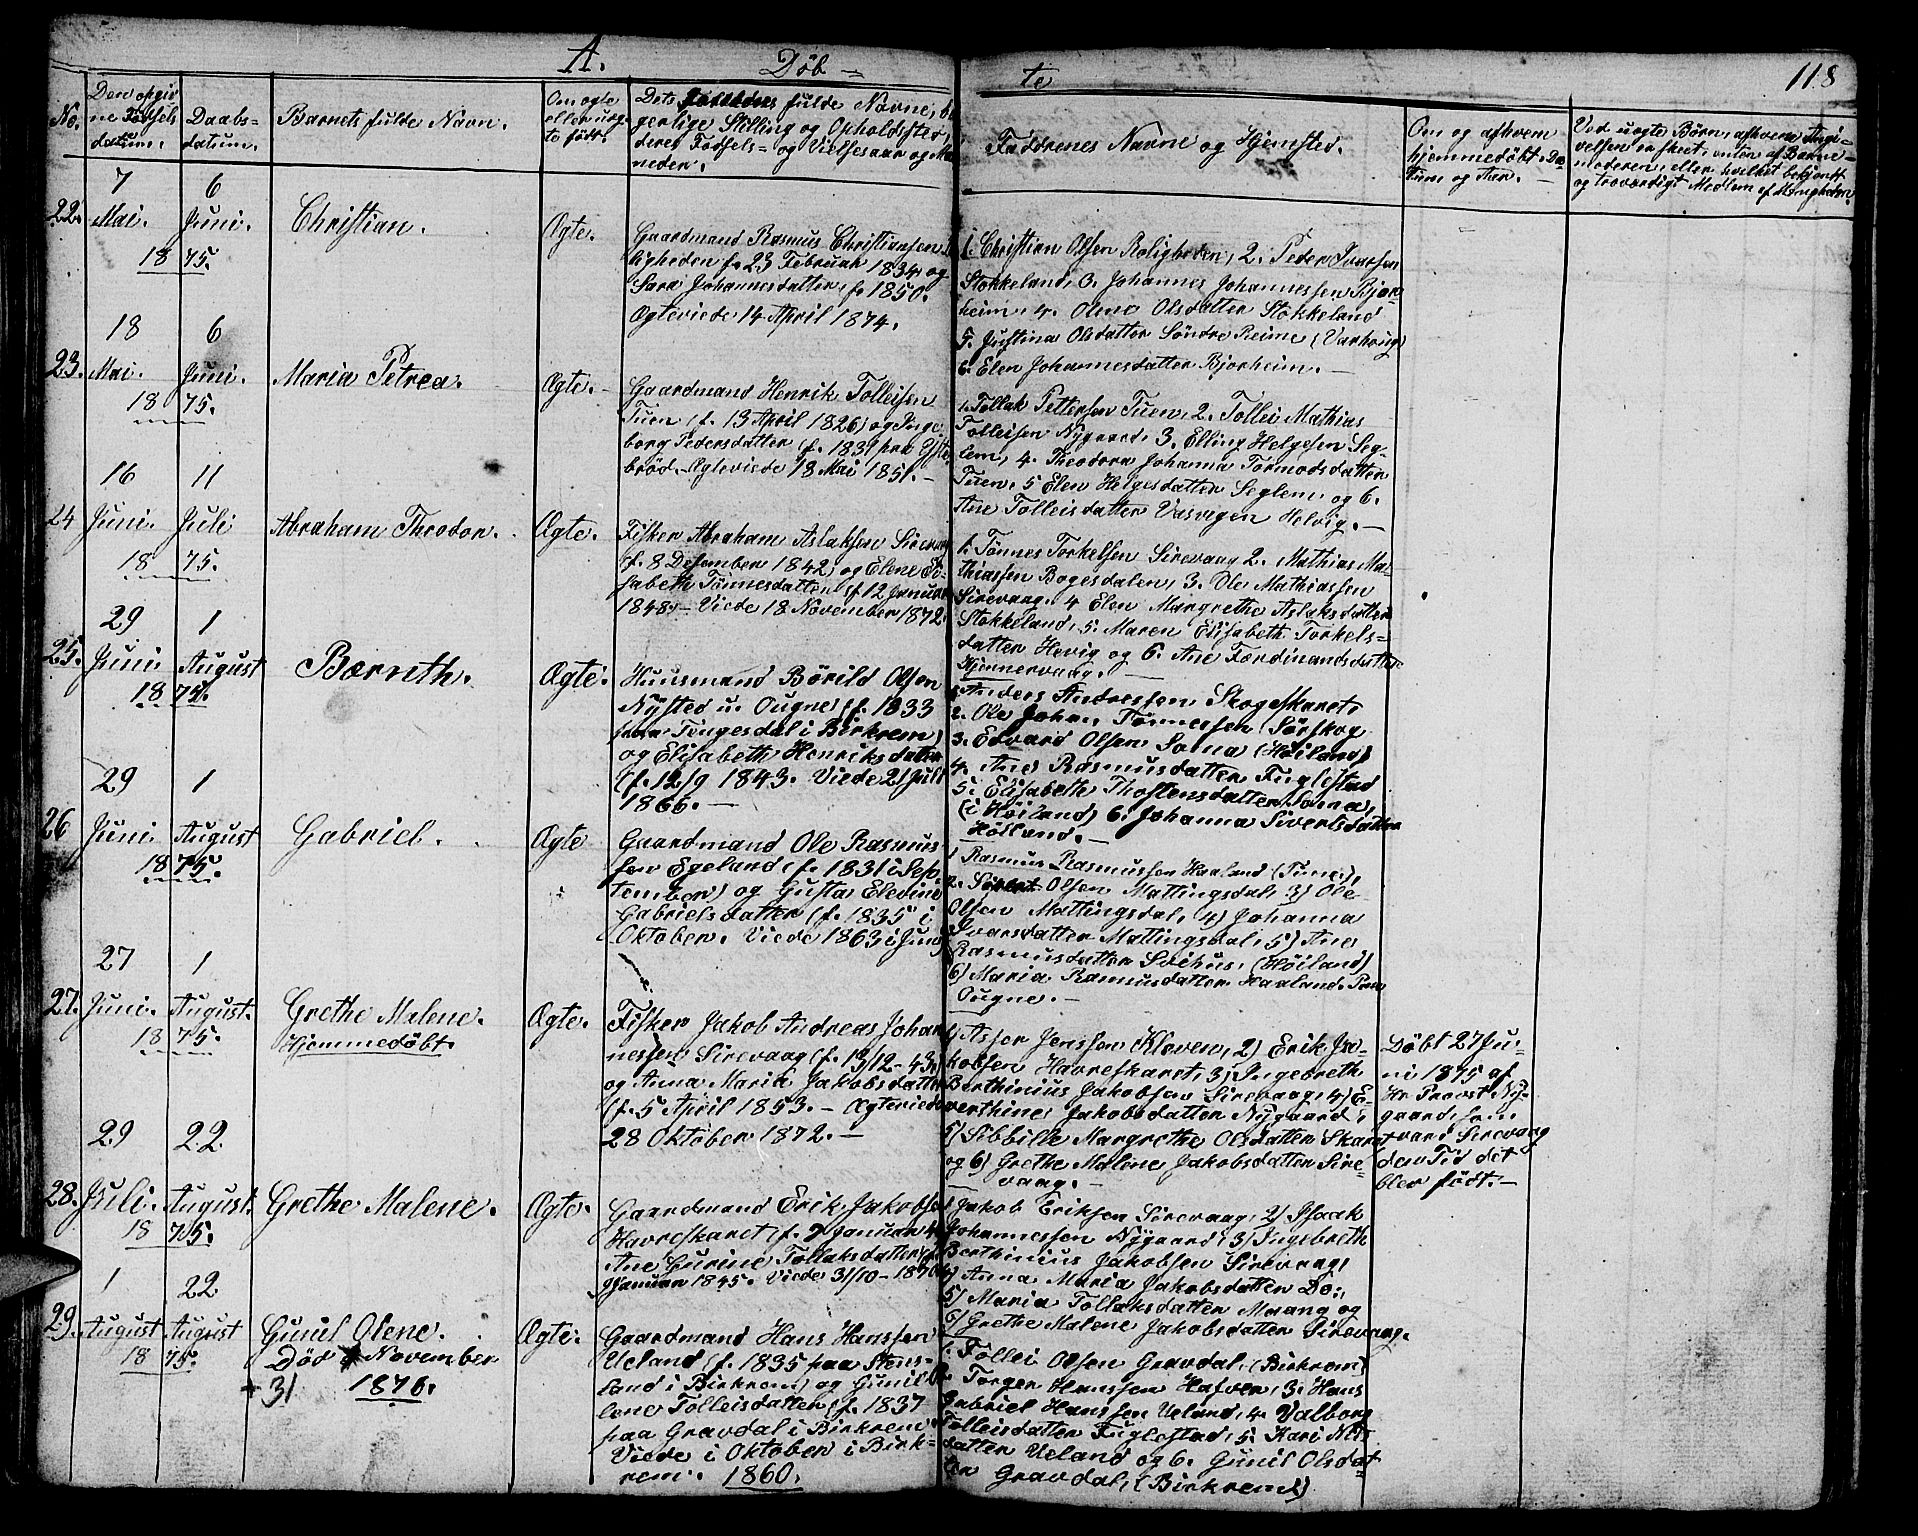 A.
Döb = te
118
No.
Den opgiv
ne Födsels
datum.
Daabs=
datum.
Barnets fulde Navn.
Om ægte
eller uæg-
te født.
fulde Navne, bo
gerlige Stilling og Opholdssted,
deres Fødsels= og Vielsesaar og Ma
neder.
Faddrenes Navne og Hjemsted.
Om og afhvem
hjemmedöbt. Da
tum og Aar.
Ved uægte Börn, afhvem Angi-
velsen er skeet, enten af Barne=
moderen, eller hvilket bekjendt
og troværdigt Medlem af Menigheden.
22.
7
Mai.
18
6
Juni.
75.
Christian.
Ægte.
Gaardmand Rasmus Christiansen
ligheden f. 23 Februar 1834 og
Sara Johannesdatter, f. 1850.
Ægteviede 14 April 1874.
1. Christian Olsen Roligheden, 2. Peder Ivarsen
Stokkeland, 3. Johannes Johannessen Bjor-
heim, 4. Olene Olsdatter Stokkeland
5. Justina Olsdatter Söndre Reime (Varhoug)
6. Elen Johannesdatter Bjorheim. —
23.
18
Mai.
18
6
Juni.
75.
Maria Petrea.
Ægte.
Gaardmand Henrik Tolleifsen
Tuen (f. 13 April 1826) og Inge
borg Pedersdatter (f. 1831 paa
bröd. Ægteviede 18 Mai 1851. —
1. Tollak Pettersen Tuen, 2. Tollei Mathias
Tolleisen Nygaard, 3. Elling Helgesen Seg-
lem, 4. Theodora Johanna Tormodsdatter
Tuen, 5 Elen Helgesdatter Seglem, og 6.
Ane Tolleisdatter Vasvigen Helvig. —
24
16
Juni.
18
11
Juli
75.
Abraham Theodor.
Ægte.
Fisker Abraham Aslaksen Sirevaag
(f. 8 Desember 1842) og Elene
sabeth Tönnesdatter (f 12 Januar
1848. — Viede 18 November 1872.
1. Tönnes Torkelsen Sirevaag 2. Mathias Ma-
thiassen Bogesdalen, 3. Ole Mathiassen
Sirevaag, 4 Elen Margrethe Aslaksdatter
Stokkeland, 5. Maren Elisabeth Torkels=
datter Hevig og 6. Ane Færdinandsdatter
Kjennervaag. —
25.
29
Juni.
18
1
August
75.
Bærnth.
Ægte.
Huusmand Börild Olsen
Nysted u. Ougne, (f. 1833
paa Tengesdal i Birkrem)
og Elisabeth Henriksdatter
(f. 12/9 1843. Viede 2 Juli
1865. —
1. Anders Andersen Skogeskaret,
2. Ole Johan Tönnessen (Sörskog
3. Edvard Olsen Soma (Höiland)
4. Ane Rasmusdatter Fuglestad
5. Elisabeth Thostensdatter Soma,
(i Höiland) 6. Johanna Sivertsdatter
Höiland. —
26
29
Juni.
18
1
August
75.
Gabriel.
Ægte
Gaardmand Ole Rasmus-
sen Egeland (f. 1831 i Sep-
tember) og Gusta Elevine
Gabrielsdatter (f. 1835 i
Oktober. Viede 1863 i Juni)
1 Rasmus Rasmussen Haaland (Time),
2. Olsen Mattingsdal, 3) Ole
Olsen Mattingsdal, 4) Johanna
Ivarsdatter Mattingsdal, 5) Ane
Rasmusdatter Svihus, (Höiland)
6) Maria Rasmusdatter Haaland
Ougne. —
27.
27
Juni.
18
1
August.
75.
Grethe Malene.
Hjemmedöbt.
Ægte.
Fisker Jakob Andreas Johan
nessen Sirevaag (f. 13/12-43)
og Anna Maria Jakobsdatter
(f. 5 April 1853. — Ægteviede
28 Oktober 1872. —
1) Asser Jenssen Kleven, 2) Erik Ja-
kobsen Havreskaret, 3) Ingebreth
Berthinius Jakobsen Sirevaag, 4) E-
verthine Jakobsdatter Nygaard,
5) Sibbille Margrethe Olsdatter Skaret
og 6) Grethe Malene Jakobsdatter Sire-
vaag. —
Döbt 27 Ju-
ni 1875 af
Hr. Provst Ny-
gaard, som
var i Sirevaag
den Tid det
blev født. —
28.
29
Juli.
18
22
August.
75.
Grethe Malene.
Ægte.
Gaardmand Erik Jakobsen
Havreskaret (f. 2 Januar
Ane Gurine Tollaksdatter (f.
9 Januar 1845. Viede 31/10 - 1870
1 Jakob Eriksen Sirevaag, 2) Isaak
Johannessen Nygaard, 3) Ingebreth
Berthinius Jakobsen Sirevaag,
4) Anna Maria Jakobsdatter Do.,
5) Maria Tollaksdatter Maang og
6) Grethe Malene Jakobsdatter Sirevaag.
29.
1
August
18
22
August
75.
Gunil Olene.
Död November
+ 31 1876.
Ægte.
Gaardmand Hans Hanssen
Ueland (f. 1835 paa Stens-
land i Birkrem) og Gunil
lene Tolleisdatter (f. 1837
paa Gravdal i Birkrem.
Viede i Oktober i Birk=
rem. 1860.
1. Tollei Olsen Gravdal, (Birkrem)
2. Torger Hanssen Hafver, 3. Hans
Gabriel Hanssen Ueland, 4. Valborg
Tolleisdatter Fuglestad, 5. Kari Nils
datter Ueland og 6. Gunil Olsdat-
ter Gravdal, (Birkrem)